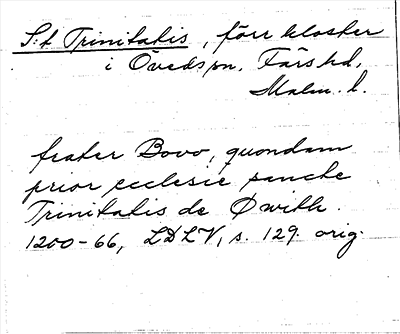 S:t Trinitatis, förr kloster
i Öveds sn, Färs hd,
Malm. l.
frater Bovo, quondam
prior ecclesie sancte
Trinitatis de Øwith.
1200-66, LDLV, s. 129. orig.